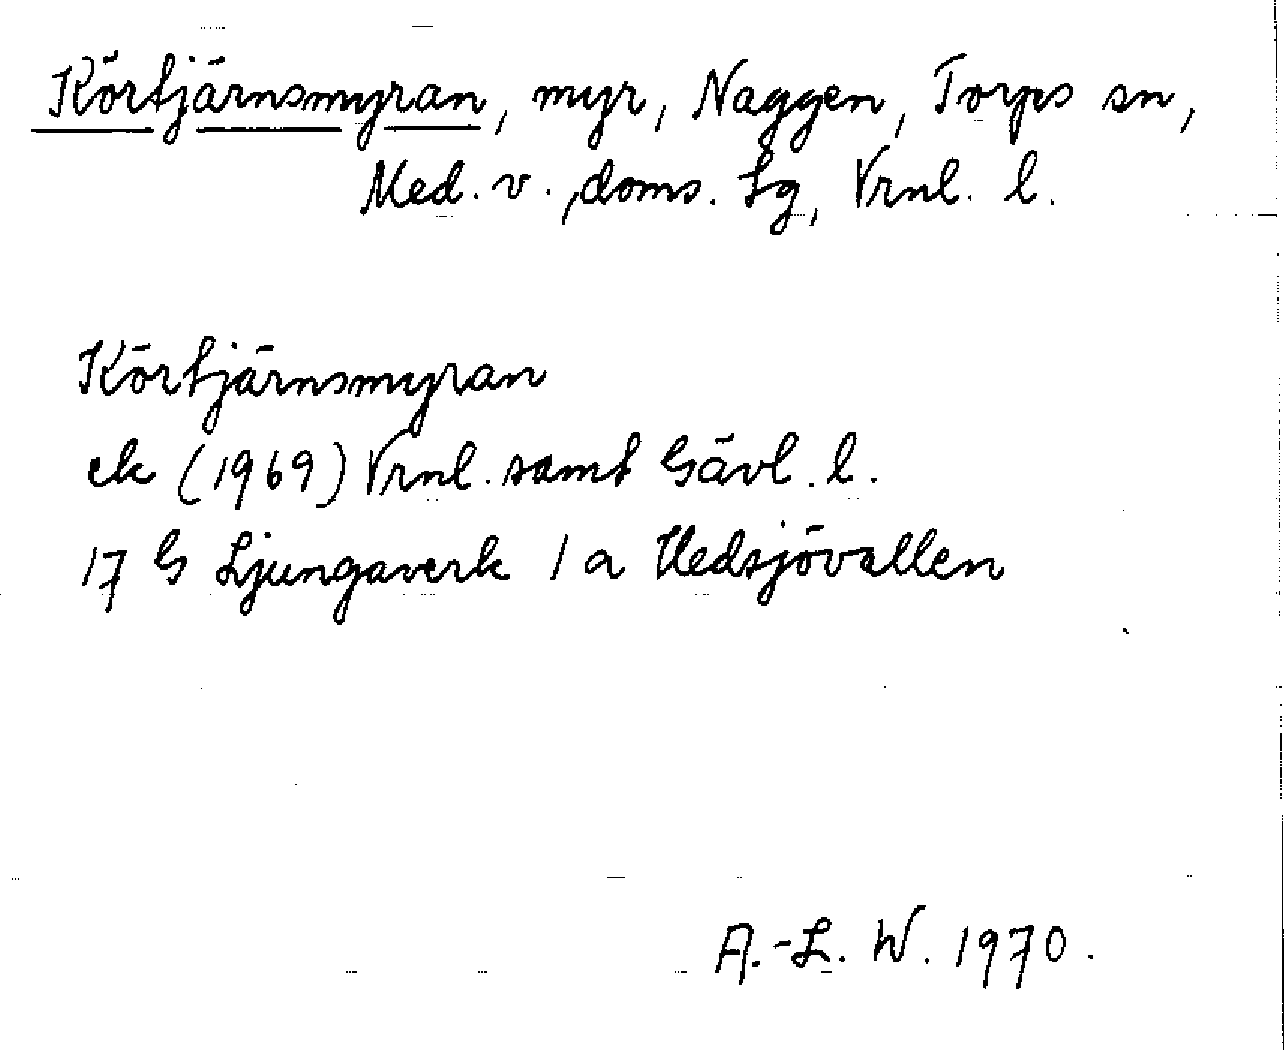 Körtjärnsmyran, myr, Naggen, Torps sn,
Med. v., doms. Lg, Vrnl. l.
Körtjärnsmyran
ek (1969) Vrnl. samt Gävl. l.
17 G Ljungaverk 1 a Hedsjövallen
A.-L. W. 1970.